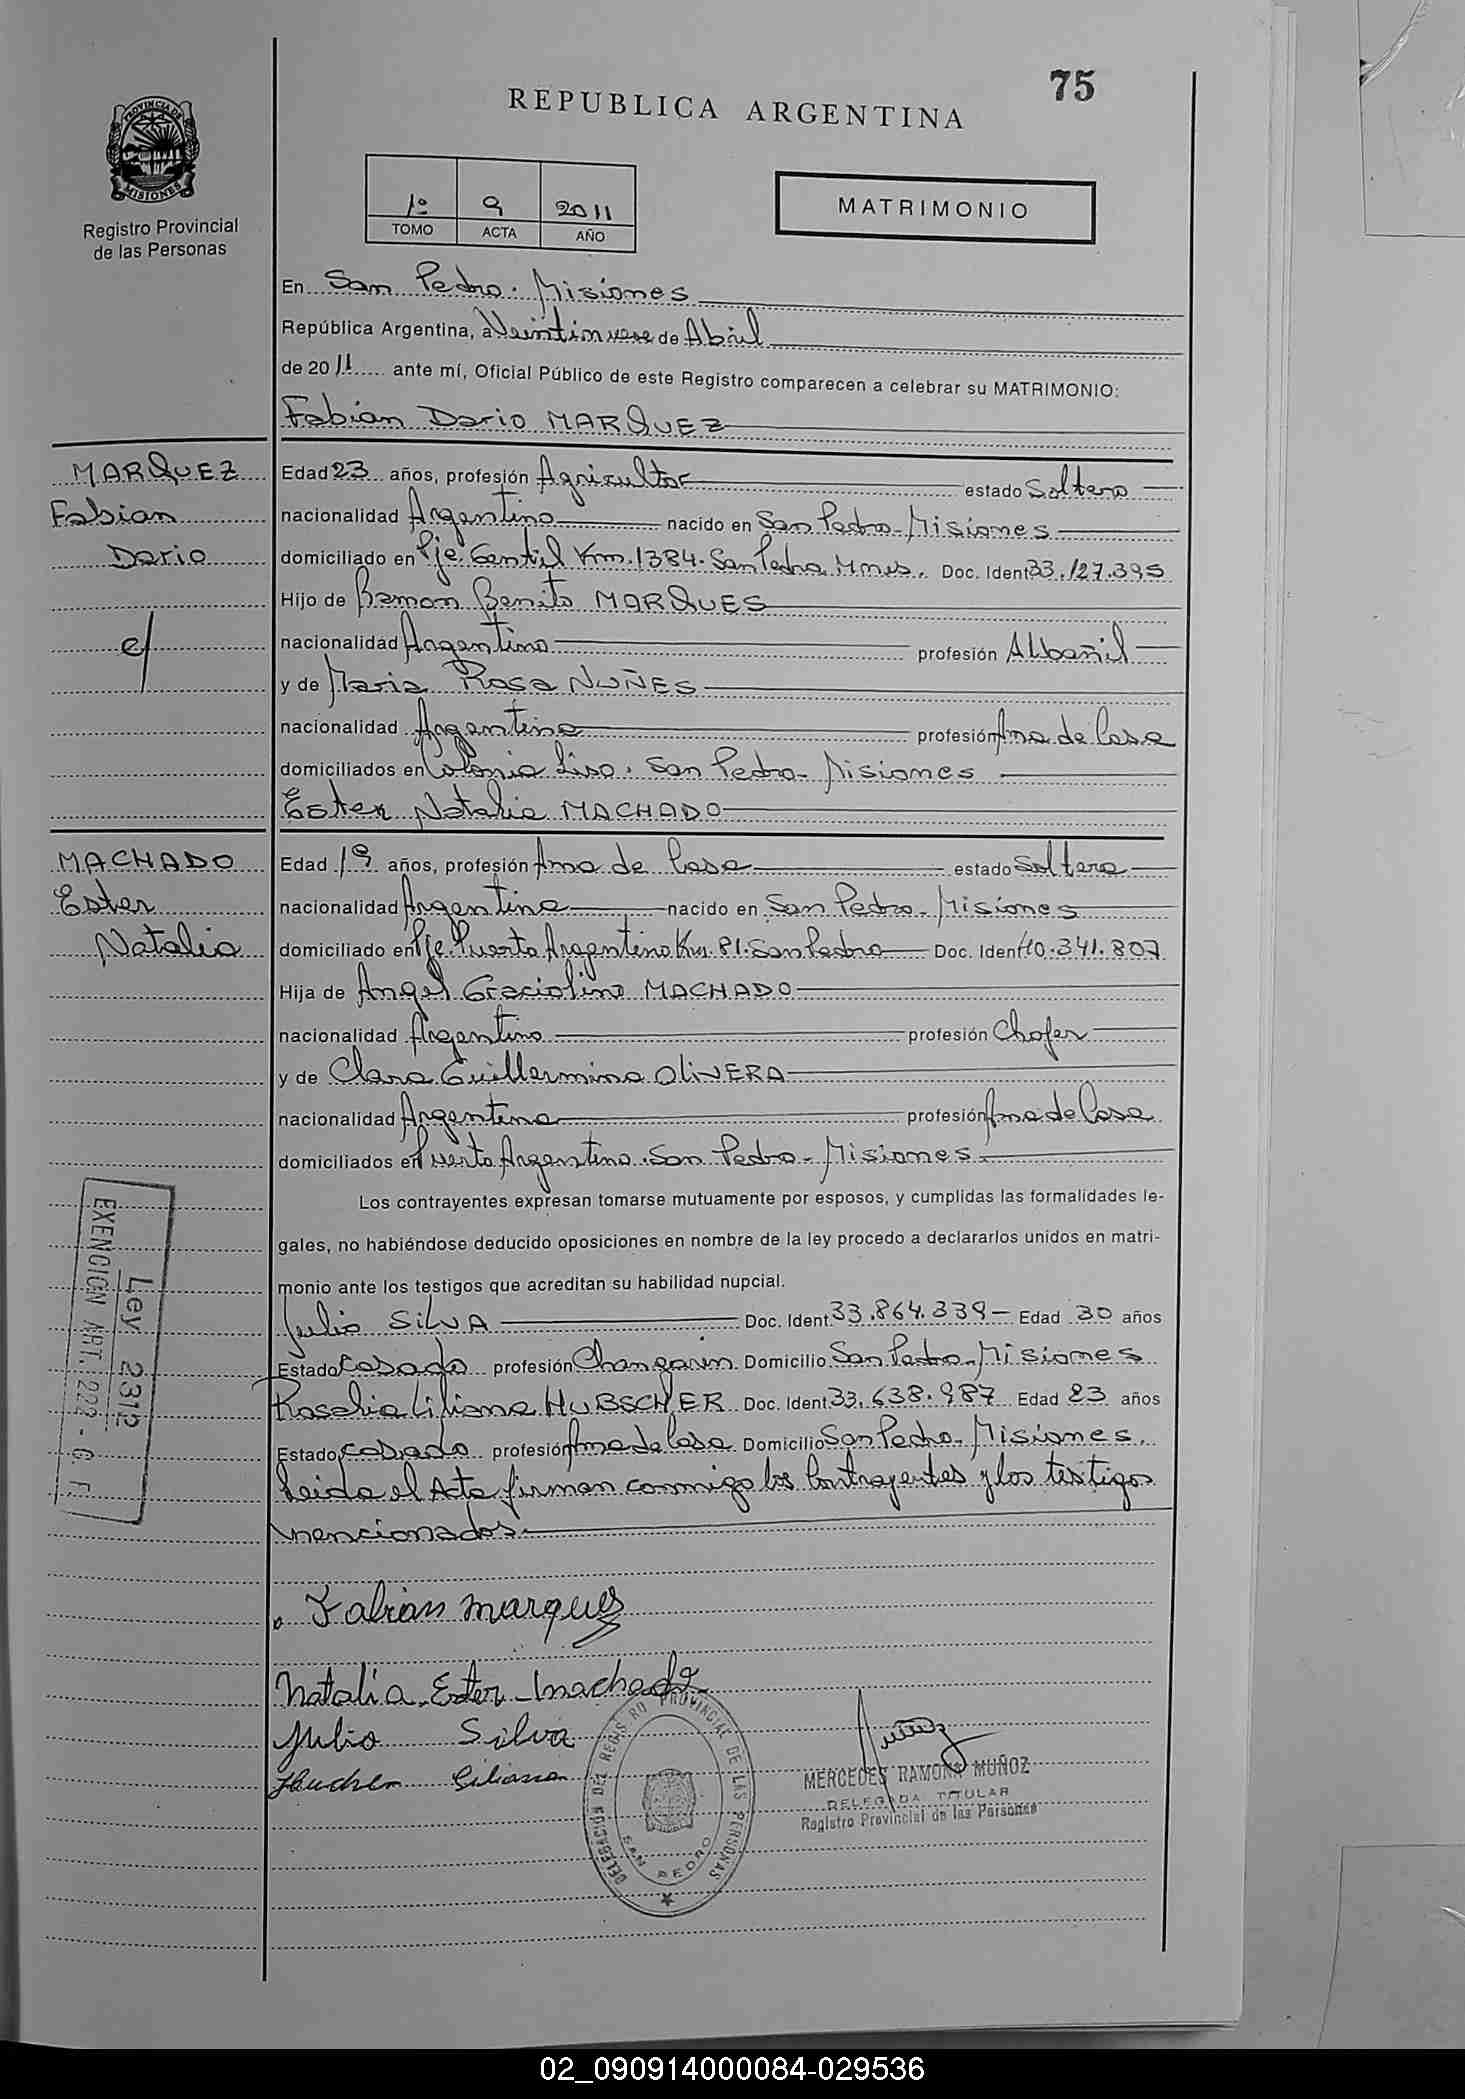 75
REPUBLICA ARGENTINA
PROVINCIA DE
MISIONES
Registro Provincial
de las Personas
1º 9 2011
TOMO ACTA AÑO
MATRIMONIO
En San Pedro. Misiones
República Argentina, a Veintinueve de Abril
de 2011 ante mí, Oficial Público de este Registro comparecen a celebrar su MATRIMONIO:
Fabian Dario MARQUEZ
MARQUEZ
Fabian
Dario
c/
Edad 23 años, profesión Agricultor estado Soltero
nacionalidad Argentino nacido en San Pedro-Misiones
domiciliado en Pje. Gentil Km. 1384. San Pedro Mnes. Doc. Ident 33.127.395
Hijo de Ramon Benito MARQUES
nacionalidad Argentino profesión Albañil
y de Maria Rosa NUÑES
nacionalidad Argentina profesión Ama de Casa
domiciliados en Colonia Liso. San Pedro-Misiones
Ester Natalia MACHADO
MACHADO
Ester
Natalia
Edad 19 años, profesión Ama de Casa estado Soltera
nacionalidad Argentina nacido en San Pedro-Misiones
domiciliado en Pje. Puerto Argentino Km. 81. San Pedro Doc. Ident 40.341.807
Hija de Angel Graciolino MACHADO
nacionalidad Argentino profesión Chofer
y de Clara Guillermina OLIVERA
nacionalidad Argentina profesión Ama de Casa
domiciliados en Puerto Argentino. San Pedro-Misiones
Los contrayentes expresan tomarse mutuamente por esposos, y cumplidas las formalidades le-
gales, no habiéndose deducido oposiciones en nombre de la ley procedo a declararlos unidos en matri-
monio ante los testigos que acreditan su habilidad nupcial.
Julio SILVA Doc. Ident. 33.864.339- Edad 30 años
Estado casado profesión Changarin Domicilio San Pedro-Misiones
Rosalia Liliana HUBSCHER Doc. Ident 33.638.987 Edad 23 años
Estado casado profesión Ama de Casa Domicilio San Pedro-Misiones.
Leida el Acta firman conmigo los Contrayentes y los testigos
mencionados.
Ley 2312
EXENCION ART. 222 - C F
Fabian marques
Natalia Ester machado
Julio Silva
Liliana
DELEGACION DEL REGISTRO PROVINCIAL DE LAS PERSONAS
SAN PEDRO
MERCEDES RAMONA MUÑOZ
DELEGADA TITULAR
Registro Provincial de las Personas
02_090914000084-029536